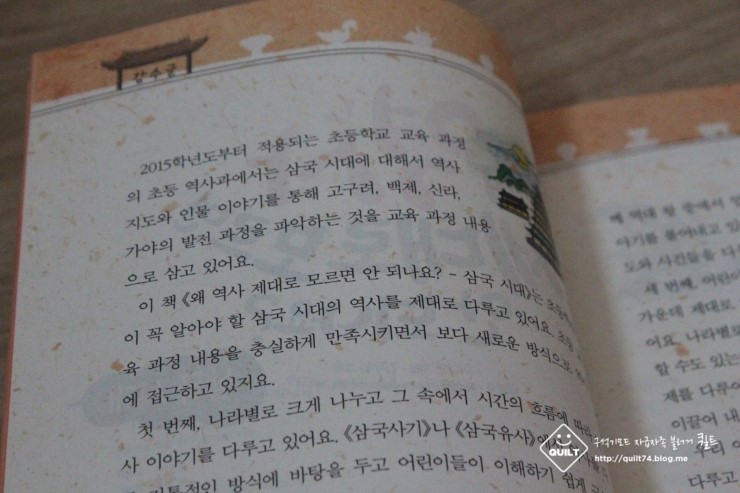 감수글
2015학년도부터 적용되는 초등학교 교육 과정
의 초등 역사과에서는 삼국 시대에 대해서 역사
지도와 인물 이야기를 통해 고구려, 백제, 신라,
가야의 발전 과정을 파악하는 것을 교육 과정 내용
으로 삼고 있어요.
이 책 《왜 역사 제대로 모르면 안 되나요? - 삼국 시대》는
이 꼭 알아야 할 삼국 시대의 역사를 제대로 다루고 있어요. 초등
육 과정 내용을 충실하게 만족시키면서 보다 새로운 방식으로
에 접근하고 있지요.
첫 번째, 나라별로 크게 나누고 그 속에서 시간의 흐름에 따라
사 이야기를 다루고 있어요. 《삼국사기》나 《삼국유사》에서
방식에 바탕을 두고 어린이들이 이해하기 쉽게
역대 왕 중에서
야기를 풀어내고
도와 사건들을
세 번째, 어린이
가운데 제대로
어요. 나라별로
할 수도 있는
제를 다루어
이끌어 내
우리
다루고
QUILT
구석기모드 자급자족 블로거 퀼트
http://quilt74.blog.me